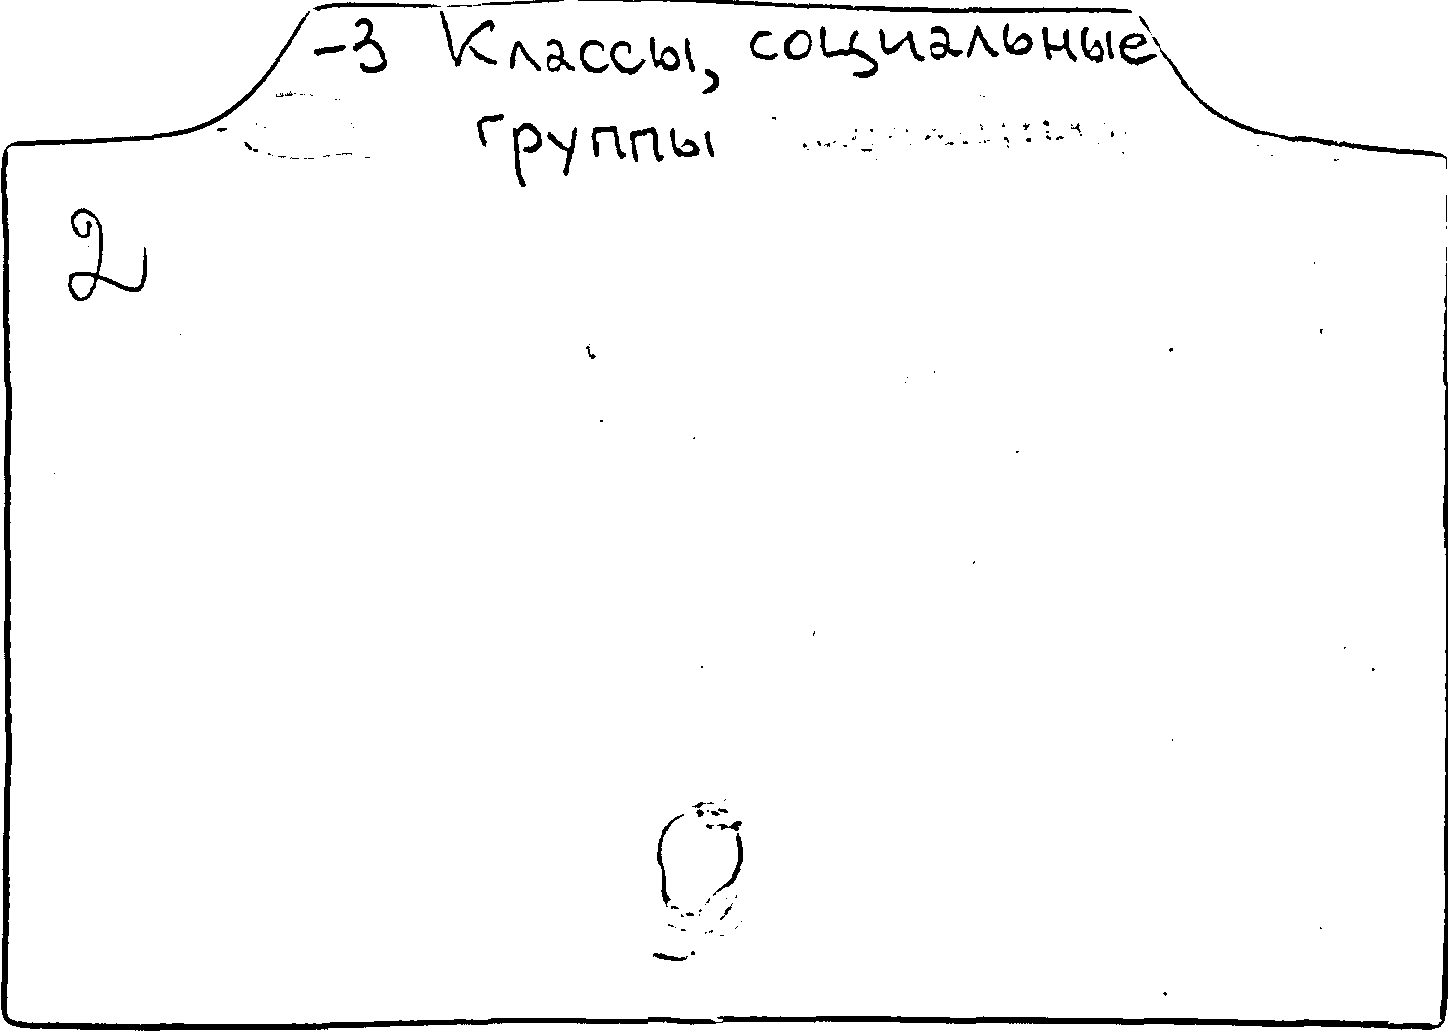 -3 Классы, социальные
группы
2